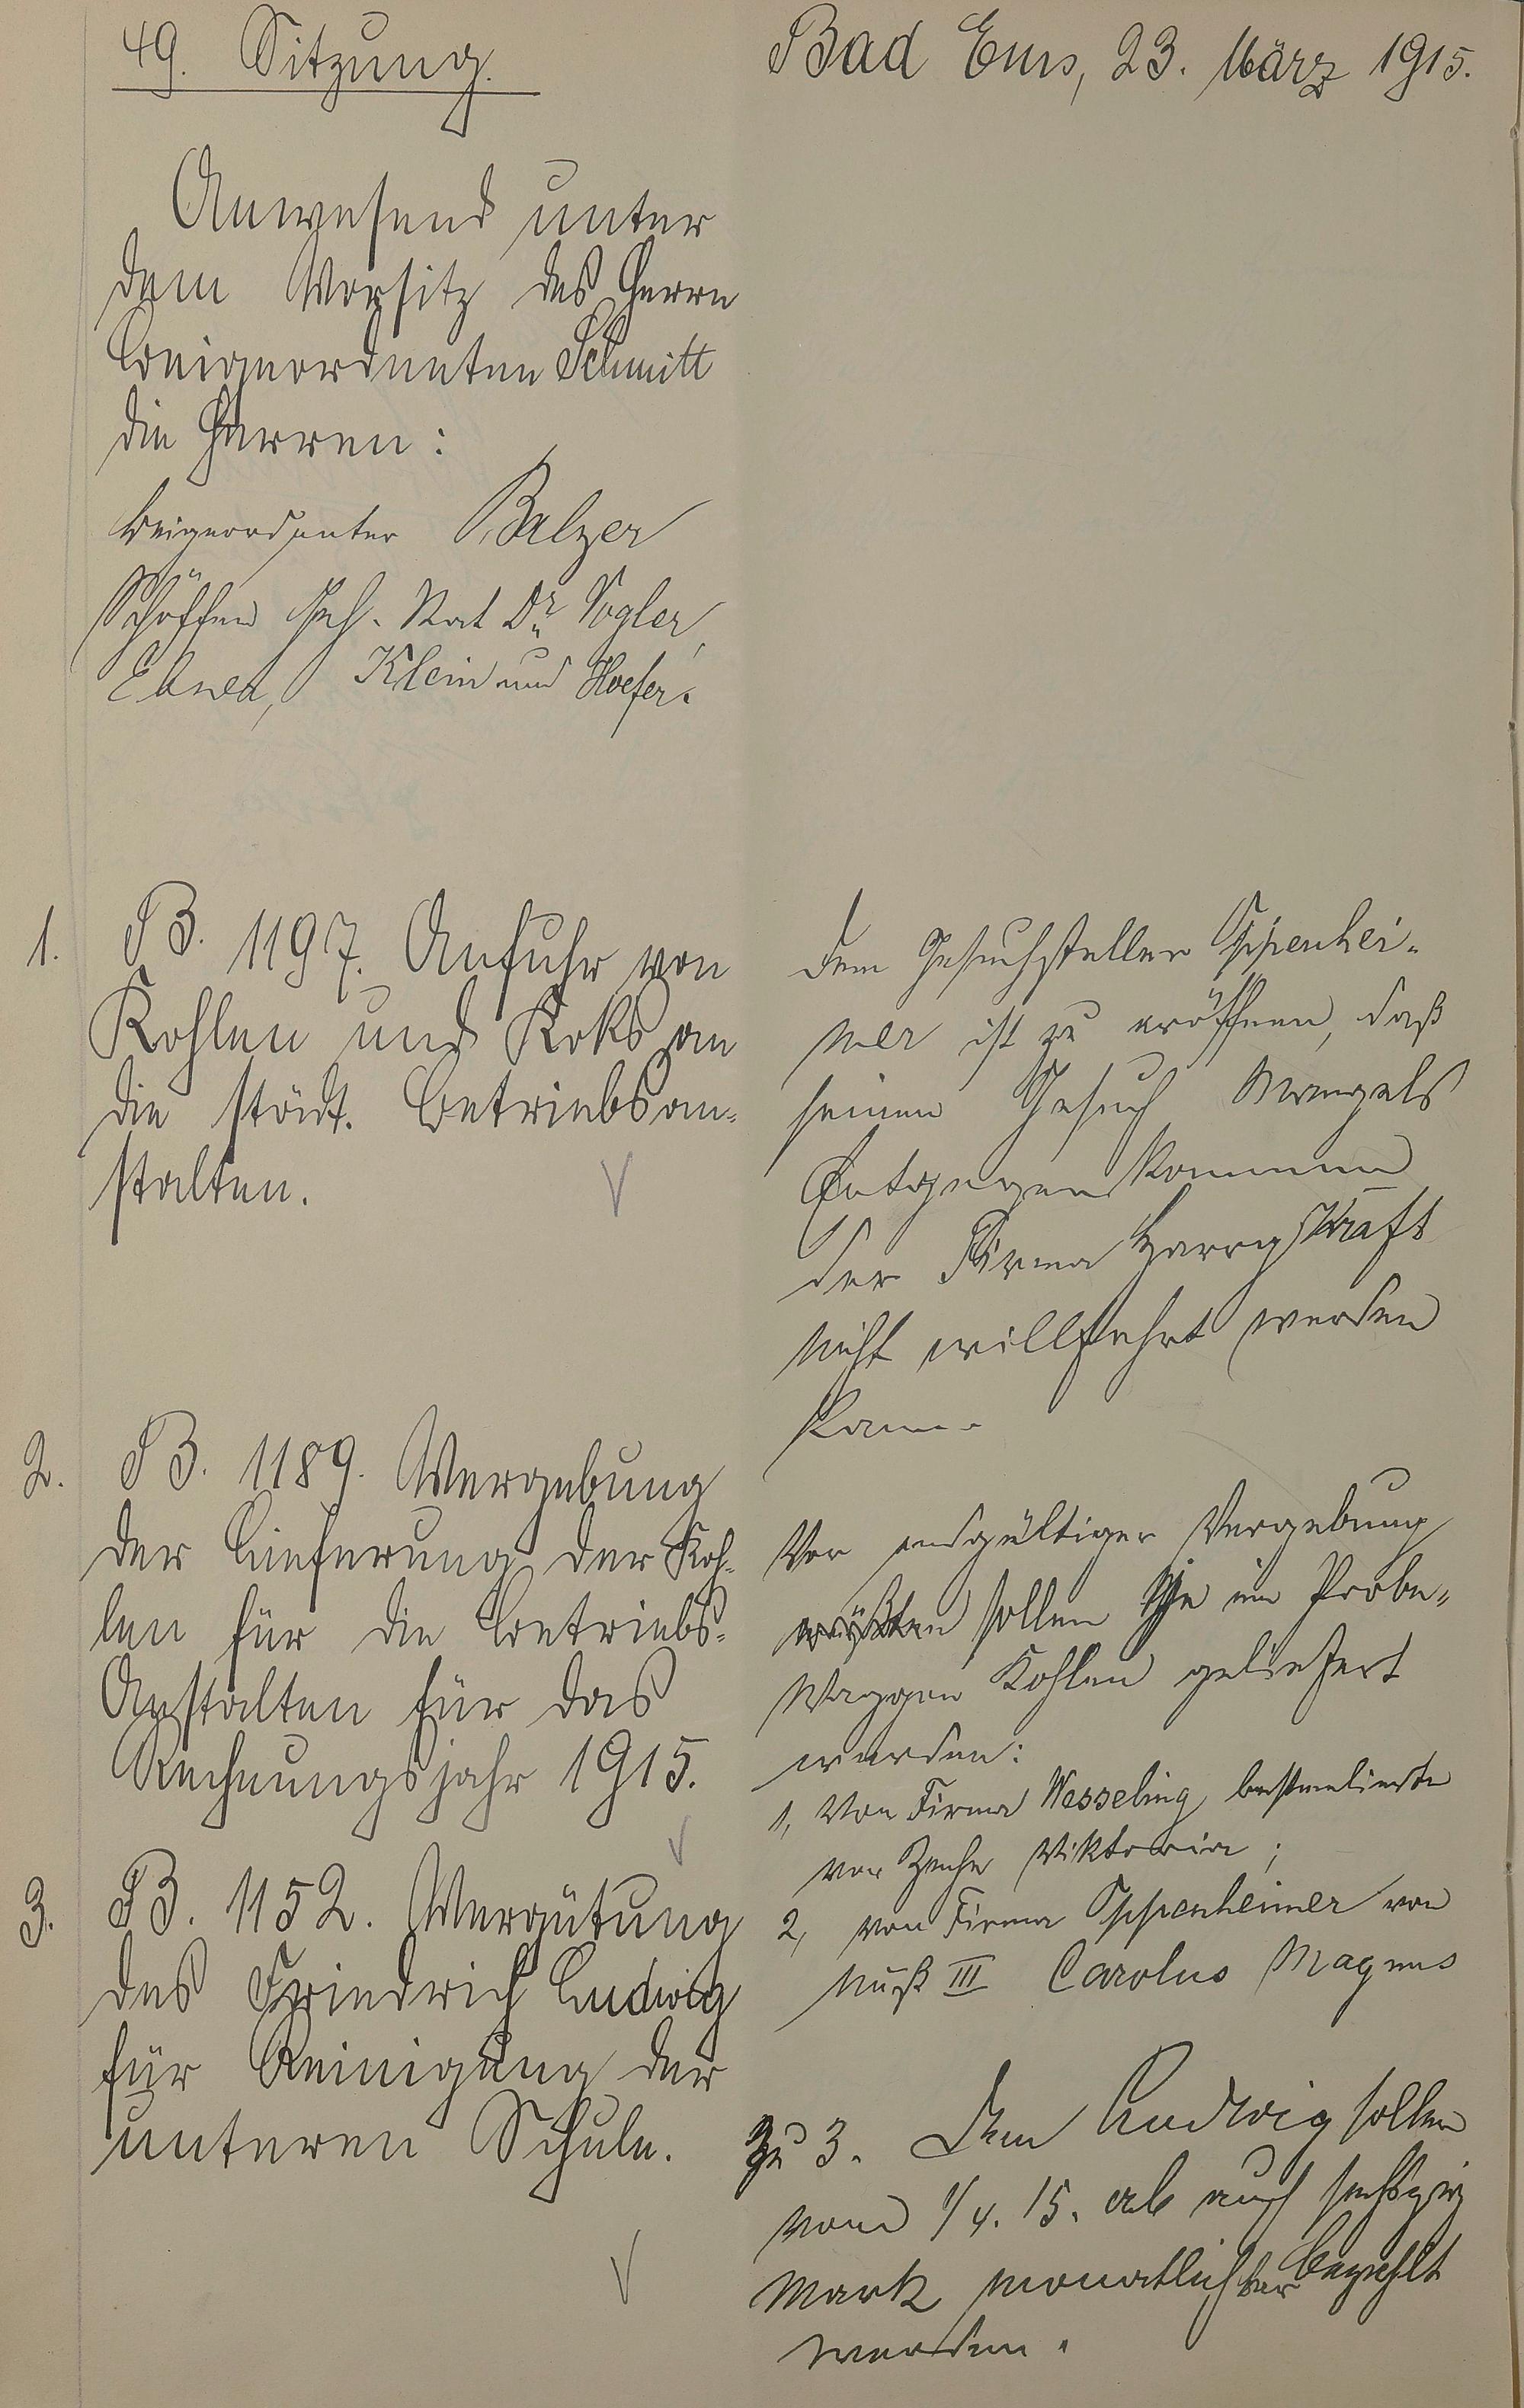 49. Sitzung.
Bad Ems, 23. März 1915.
Anwesend unter
dem Vorsitz des Herrn
Beigeordneten Schmitt
die Herren:
Beigeordneter Balzer
Schöffen Geh. Rat Dr. Vogler,
Ebner, Klein und Hoefer.
1. B. 1197. Anfuhr von
Kohlen und Koks an
die städt. Betriebsan-
stalten.
Dem Gesuchsteller Oppenhei-
mer ist zu eröffnen, daß
seinem Gesuch Mangels
Entgegenkommen
der Firma Harry Kraft
nicht willfahrt werden
kann.
2. B. 1189. Vergebung
der Lieferung der Koh-
len für die Betriebs-
Anstalten für das
Rechnungsjahr 1915.
Vor endgültiger Vergebung
müßten sollen je ein Probe-
Waggon Kohlen geliefert
werden:
1, Von Firma Wesseling bestmelierte
von Zeche Viktoria;
2, von Firma Oppenheimer von
Nuß III Carolus Magnus
3. B. 1152. Vergütung
des Friedrich Ludwig
für Reinigung der
unteren Schule.
zu 3. Dem Ludwig sollen
vom 1/4. 15. ab auch sechszig
Mark monatlich bezahlt
werden.